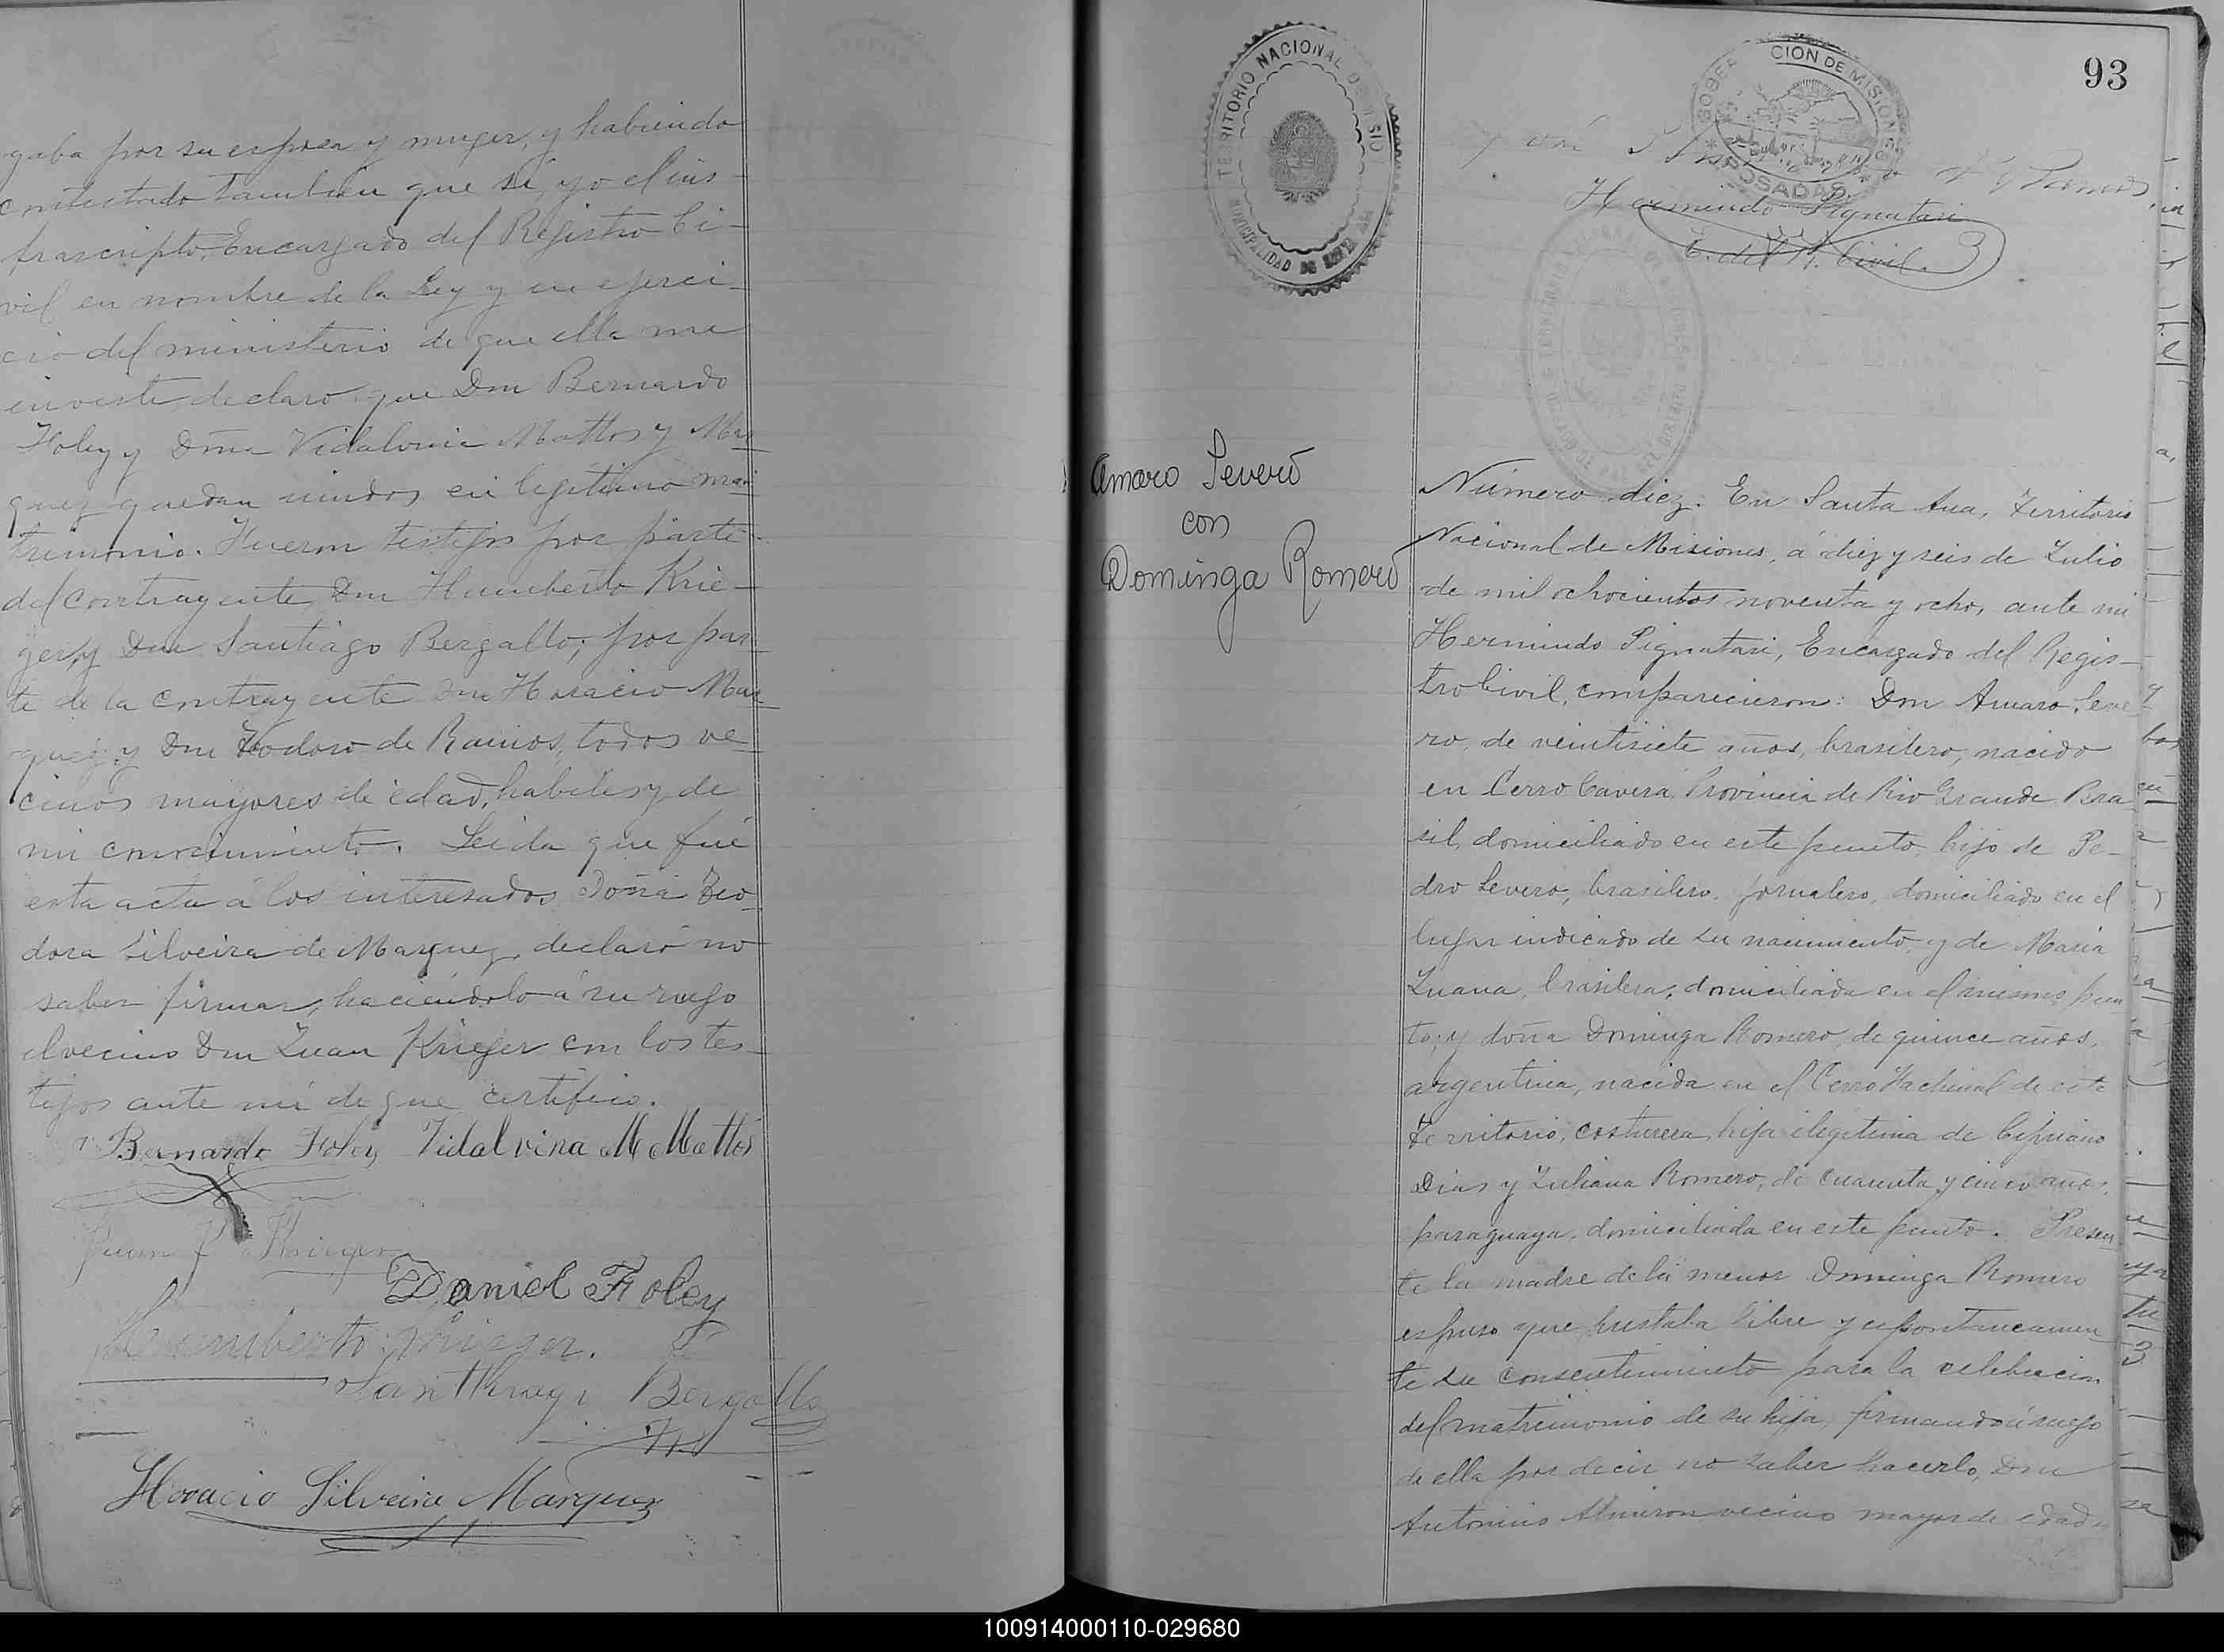 gaba por su esposa y muger, y habiendo
contestado tambien que sí, yo el ins-
frascripto, Encargado del Registro Ci-
vil en nombre de la Ley y en ejerci-
cio del ministerio de que ella me
inviste, declaro que Don Bernardo
Foley y Dña Vidalvina Mattos y Mar
quez quedan unidos en legitimo ma-
trimonio. Fueron testigos por parte
del contrayente, Don Humberto Krie-
ger, y Don Santiago Bergallo; por par-
te de la contrayente Don Horacio Mar-
quez y Don Teodoso de Ramos, todos ve-
cinos mayores de edad, habiles y de
mi conocimiento. Leida que fué
esta acta á los interesados Doña Teo-
dora Silveira de Marquez, declaró no
saber firmar, haciéndolo á su ruego
el vecino Don Juan Krieger con los tes-
tigos ante mi de que certifico.
Bernardo Foley Vidalvina M Mattos
Juan Krieger
Daniel Foley
Humberto Krieger.
Santhiago Bergallo
Horacio Silveira Marquez
93
TERRITORIO NACIONAL DE MISIONES
MUNICIPALIDAD DE SANTA ANA
GOBERNACION DE MISIONES
POSADAS
Hermindo Pignatari
E. del R. Civil.
Amaro Severo
con
Dominga Romero
Número diez. En Santa Ana, Territorio
Nacional de Misiones, á diez y seis de Julio
de mil ochocientos noventa y ocho, ante mi
Hermindo Pignatari, Encargado del Regis-
tro Civil, comparecieron: Don Amaro Seve
ro, de veintisiete años, brasilero, nacido
en Cerro Cavera Provincia de Rio Grande Bra
sil, domiciliado en este punto, hijo de Pe-
dro Severo, brasilero, jornalero, domiciliado en el
lugar indicado de su nacimiento, y de Maria
Juana, brasilera, domiciliada en el mismo pun
to; y doña Dominga Romero, de quince años,
argentina, nacida en el Cerro de este
Territorio, costurera, hija ilegitima de Cipriano
Dias y Juliana Romero, de cuarenta y cinco años,
paraguaya, domiciliada en este punto. Presen
te la madre de la menor Dominga Romero
espuso que prestaba libre y espontaneamen
te su consentimiento para la celebracion
del matrimonio de su hija, firmando á ruego
de ella por decir no saber hacerlo, Don
Antonino Almiron vecino mayor de edad
100914000110-029680